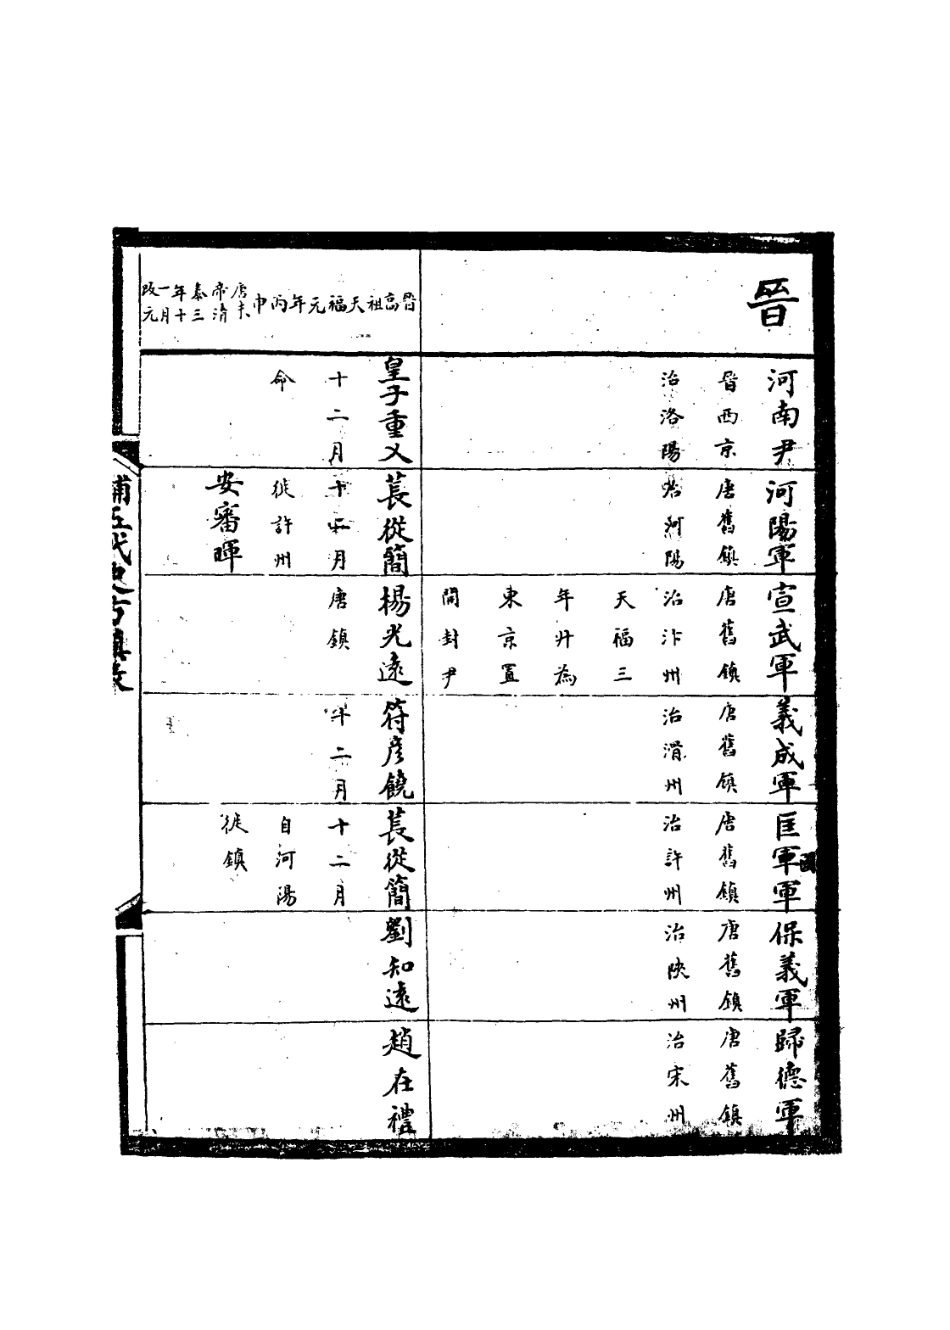 晉
河南尹
晉西京
治洛陽
河陽軍
唐舊鎮
治河陽
宣武軍
唐舊鎮
治汴州
天福三
年升為
東京置
開封尹
義成軍
唐舊鎮
治滑州
匡軍軍
唐舊鎮
治許州
保義軍
唐舊鎮
治陝州
歸德軍
唐舊鎮
治宋州
晉高祖天福元年丙申
唐末
帝清
泰三
年十
一月
改元
皇子重乂
十二月
命
萇從簡
十二月
徙許州
安審暉
楊光遠
唐鎮
符彥饒
十二月
萇從簡
十二月
自河陽
徙鎮
劉知遠
趙在禮
補五代史方鎮表